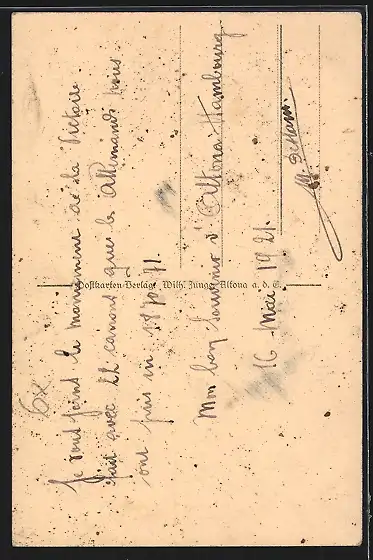 Je vout joins le monument de la Victoire
fait avec 22 canons que le Allemands nous
ont pris in 1870/71.
Mon bon Souvenir d'Altona-Hambourg
16 Mai 1921.
Postkarten-Verlag Wilh. Junge, Altona a. d. E.
6x